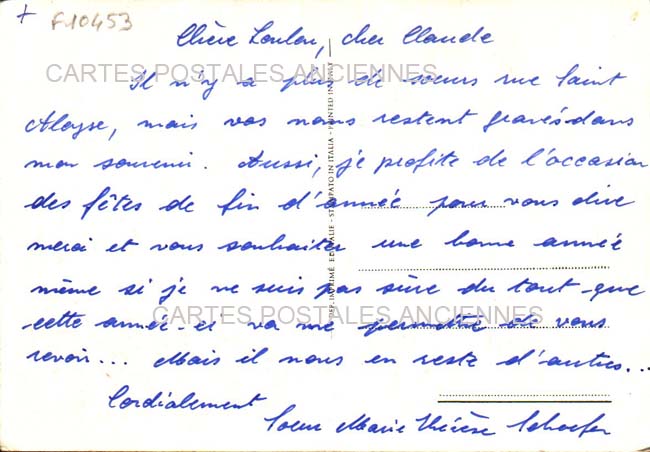 + F10453
Chère Loulou, cher Claude
Il n'y a plus de soeurs rue Saint
CARTES POSTALES ANCIENNES
Aloyse, mais vos noms restent gravés dans
mon souvenir. Aussi, je profite de l'occasion
des fêtes de fin d'année pour vous dire
merci et vous souhaiter une bonne année
même si je ne suis pas sûre du tout que
cette année-ci va me permettre de vous
CARTES POSTALES ANCIENNES
revoir... Mais il nous en reste d'autres...
Cordialement
Soeur Marie Thérèse
IMPRIMÉ EN ITALIE - STAMPATO IN ITALIA - PRINTED IN ITALY